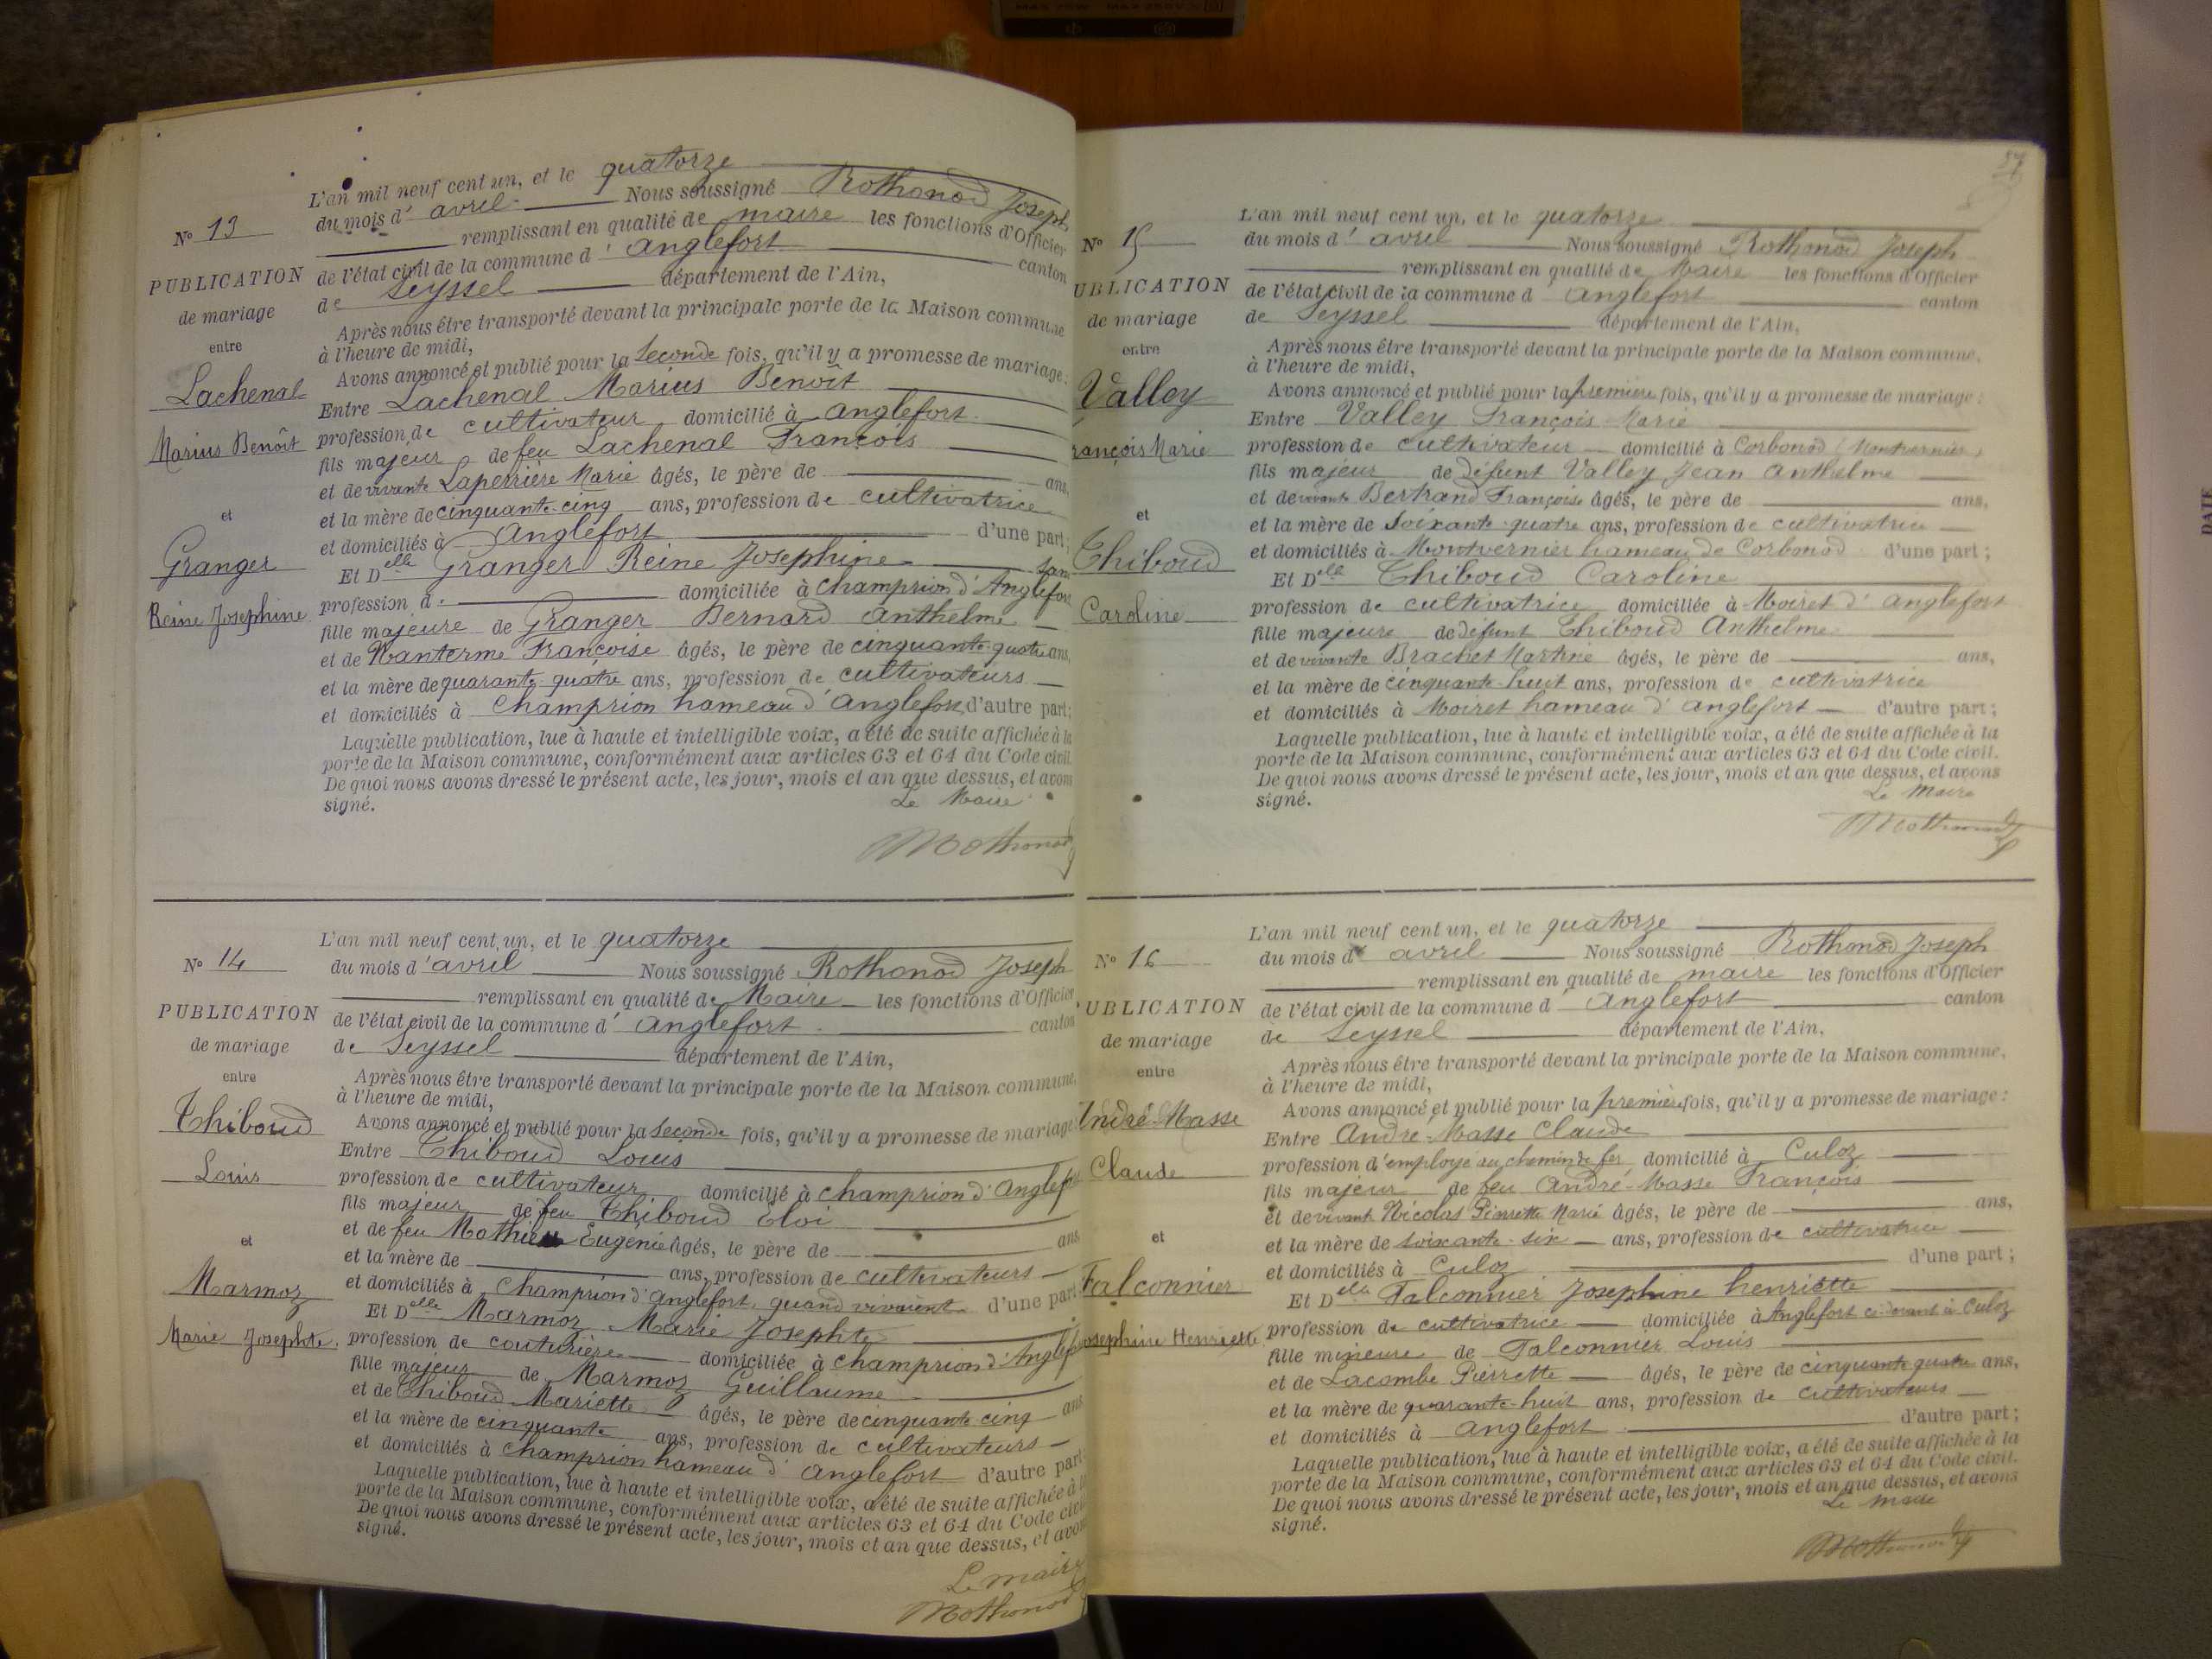 N° 13
PUBLICATION
de mariage
entre
Lachenal
Marius Benoît
et
Granger
Reine Josephine
L'an mil neuf cent un, et le quatorze
du mois d'avril Nous soussigné Rothonod Joseph
remplissant en qualité de maire les fonctions d'Officier
de l'état civil de la commune d'Anglefort canton
de Seyssel département de l'Ain,
Après nous être transporté devant la principale porte de la Maison commune
à l'heure de midi,
Avons annoncé et publié pour la Seconde fois, qu'il y a promesse de mariage:
Entre Lachenal Marius Benoît
profession de cultivateur domicilié à Anglefort
fils majeur de feu Lachenal François
et de vivante Laperrière Marie âgés, le père de ans,
et la mère de cinquante-cinq ans, profession de cultivatrice
et domiciliés à Anglefort d'une part;
Et Delle Granger Reine Josephine sans
profession de domiciliée à Champrion d'Anglefort
fille majeure de Granger Bernard Anthelme
et de Nanterme Françoise âgés, le père de cinquante-quatre ans,
et la mère de quarante-quatre ans, profession de cultivateurs
et domiciliés à Champrion hameau d'Anglefort d'autre part;
Laquelle publication, lue à haute et intelligible voix, a été de suite affichée à la
porte de la Maison commune, conformément aux articles 63 et 64 du Code civil.
De quoi nous avons dressé le présent acte, les jour, mois et an que dessus, et avons
signé.
Le Maire
Rothonod
N° 14
PUBLICATION
de mariage
entre
Thiboud
Louis
et
Marmoz
Marie Josephte
L'an mil neuf cent un, et le quatorze
du mois d'avril Nous soussigné Rothonod Joseph
remplissant en qualité de Maire les fonctions d'Officier
de l'état civil de la commune d'Anglefort canton
de Seyssel département de l'Ain,
Après nous être transporté devant la principale porte de la Maison commune,
à l'heure de midi,
Avons annoncé et publié pour la Seconde fois, qu'il y a promesse de mariage
Entre Thiboud Louis
profession de cultivateur domicilié à Champrion d'Anglefort
fils majeur de feu Thiboud Eloi
et de feu Mathieu Eugenie âgés, le père de ans
et la mère de ans, profession de cultivateurs
et domiciliés à Champrion d'Anglefort, quand vivaient d'une part
Et Delle Marmoz Marie Josephte
profession de couturière domiciliée à Champrion d'Anglefort
fille majeur de Marmoz Guillaume
et de Thiboud Mariette âgés, le père de cinquante cinq ans
et la mère de cinquante ans, profession de cultivateurs
et domiciliés à Champrion hameau d'Anglefort d'autre part
Laquelle publication, lue à haute et intelligible voix, a été de suite affichée à la
porte de la Maison commune, conformément aux articles 63 et 64 du Code civil
De quoi nous avons dressé le présent acte, les jour, mois et an que dessus, et avons
signé.
Le maire
Rothonod
N° 15
UBLICATION
de mariage
entre
Valley
rançois Marie
et
Thiboud
Caroline
L'an mil neuf cent un, et le quatorze
du mois d'avril Nous soussigné Rothonod Joseph
remplissant en qualité de Maire les fonctions d'Officier
de l'état civil de la commune d'Anglefort canton
de Seyssel département de l'Ain,
Après nous être transporté devant la principale porte de la Maison commune,
à l'heure de midi,
Avons annoncé et publié pour la première fois, qu'il y a promesse de mariage:
Entre Valley François Marie
profession de cultivateur domicilié à Corbonod (Montvernier)
fils majeur de défunt Valley Jean Anthelme
et de vivante Bertrand Françoise âgés, le père de ans,
et la mère de soixante-quatre ans, profession de cultivatrice
et domiciliés à Montvernier hameau de Corbonod d'une part;
Et Delle Thiboud Caroline
profession de cultivatrice domiciliée à Moiret d'Anglefort
fille majeure de défunt Thiboud Anthelme
et de vivante Brachet Martine âgés, le père de ans,
et la mère de cinquante-huit ans, profession de cultivatrice
et domiciliés à Moiret hameau d'Anglefort d'autre part;
Laquelle publication, lue à haute et intelligible voix, a été de suite affichée à la
porte de la Maison commune, conformément aux articles 63 et 64 du Code civil.
De quoi nous avons dressé le présent acte, les jour, mois et an que dessus, et avons
signé.
Le Maire
Rothonod
N° 16
UBLICATION
de mariage
entre
André-Masse
Claude
et
Falconnier
Josephine Henriette
L'an mil neuf cent un, et le quatorze
du mois d'avril Nous soussigné Rothonod Joseph
remplissant en qualité de maire les fonctions d'Officier
de l'état civil de la commune d'Anglefort canton
de Seyssel département de l'Ain.
Après nous être transporté devant la principale porte de la Maison commune,
à l'heure de midi,
Avons annoncé et publié pour la première fois, qu'il y a promesse de mariage:
Entre André-Masse Claude
profession d'employé au chemin de fer domicilié à Culoz
fils majeur de feu André-Masse François
et de vivant Nicolas Pierrette Marie âgés, le père de ans,
et la mère de soixante-six ans, profession de cultivatrice
et domiciliés à Culoz d'une part;
Et Delle Falconnier Josephine henriette
profession de cultivatrice domiciliée à Anglefort ci-devant à Culoz
fille mineure de Falconnier Louis
et de Lacombe Pierrette âgés, le père de cinquante quatre ans,
et la mère de quarante-huit ans, profession de cultivateurs
et domiciliés à Anglefort d'autre part;
Laquelle publication, lue à haute et intelligible voix, a été de suite affichée à la
porte de la Maison commune, conformément aux articles 63 et 64 du Code civil.
De quoi nous avons dressé le présent acte, les jour, mois et an que dessus, et avons
signé.
Le maire
Rothonod
DATE